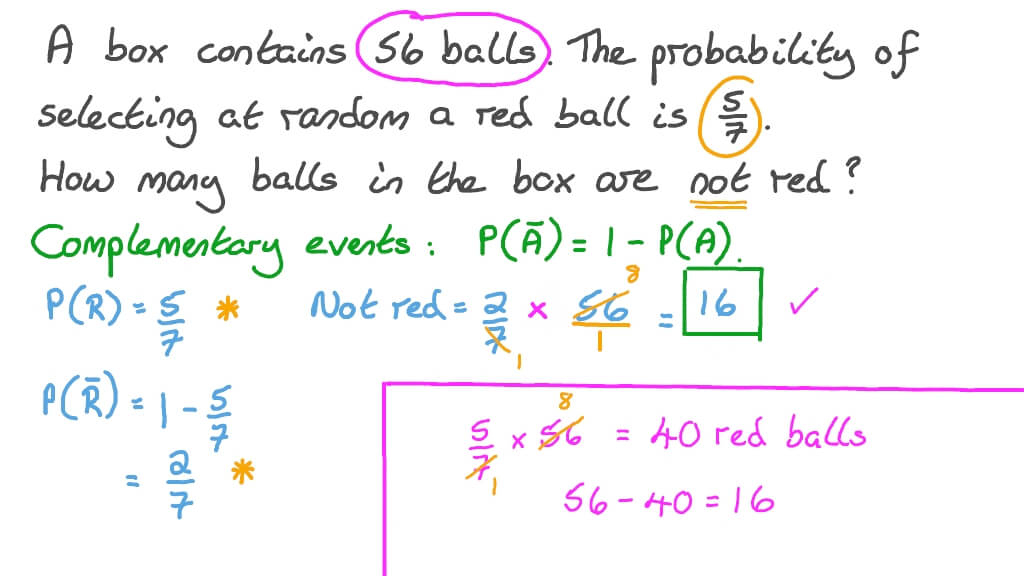 A box contains 56 balls. The probability of
selecting at random a red ball is 5/7.
How many balls in the box are not red?
Complementary events: P(Ā) = 1 - P(A).
P(R) = 5/7 * Not red = 2/7 1 × 56/1 8 = 16 ✓
P(R̄) = 1 - 5/7
= 2/7 *
5/7 1 × 56 8 = 40 red balls
56 - 40 = 16